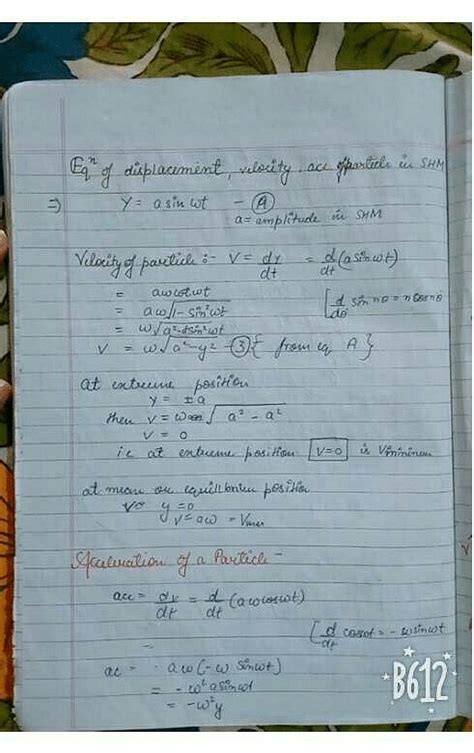 Eqⁿ of displacement, velocity, acc of particle in SHM
⇒ Y = a sin ωt - Ⓐ
a = amplitude in SHM
Velocity of particle :- V = dy/dt = d/dt (a sin ωt)
= aω cos ωt
= aω√1 - sin²ωt
= ω√a² - a²sin²ωt
V = ω√a² - y² - ③ { from eq A }
[d/dθ sin nθ = n cos nθ
at extreme position
y = ±a
then v = ω√a² - a²
V = 0
ie at extreme position V=0 is Vminimum
at mean or equilibrium position
y = 0
V = aω = Vmax
Acceleration of a Particle -
acc = dv/dt = d/dt (aω cos ωt)
[d/dt cos ωt = - ω sin ωt
=
ac = aω (-ω sin ωt)
= - ω² a sin ωt
= - ω² y
B612